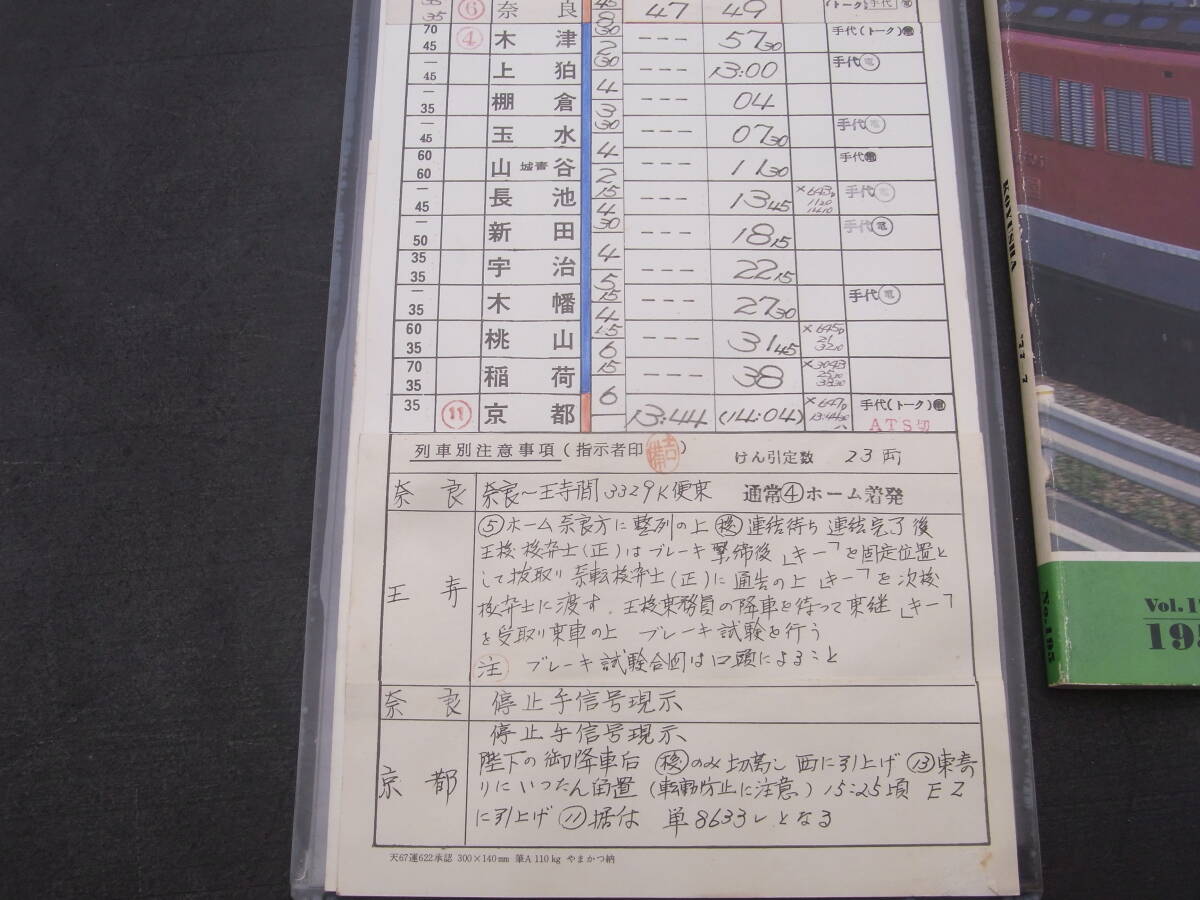 35 ⑥ 奈良 45 47 49 (トーク) 手代 電
70 45 ④ 木津 8 30 --- 57 30 手代(トーク) 電
- 45 上狛 2 30 --- 13:00 手代 電
- 35 棚倉 4 --- 04
- 45 玉水 3 30 --- 07 30 手代 電
60 60 山城青谷 4 --- 11 30 手代 電
- 45 長池 2 15 --- 13 45 手代 電
- 50 新田 4 30 --- 18 15 手代 電
35 35 宇治 4 --- 22 15
- 35 木幡 5 15 --- 27 30 手代 電
60 35 桃山 4 15 --- 31 45 ×645D 21
70 35 稲荷 6 15 --- 38
35 ⑪ 京都 6 13:44 (14:04) ×647D 13:44 手代(トーク) 電
ATS切
列車別注意事項 (指示者印 ) けん引定数 23両
奈良 奈良~王寺間 3329K便乗 通常④ホーム着発
王寺 ⑤ホーム奈良方に整列の上 機 連結待ち 連結完了後
王機機弁士(正)はブレーキ緊締後「キー」を固定位置と
して抜取り奈転機弁士(正)に通告の上「キー」を次機
機弁士に渡す. 王機乗務員の降車を待って乗継「キー」
を受取り乗車の上 ブレーキ試験を行う
注 ブレーキ試験合図は口頭によること
奈良 停止手信号現示
京都 停止手信号現示
陛下の御降車后 機のみ切離し 西に引上げ ⑬東寄
りにいったん留置 (転動防止に注意) 15:25頃 EZ
に引上げ ⑪据付 単8633レとなる
天67運622承認 300×140mm 筆A 110kg やまかつ納
KOYUSHA
'77
7
No.195
Vol. 1
195